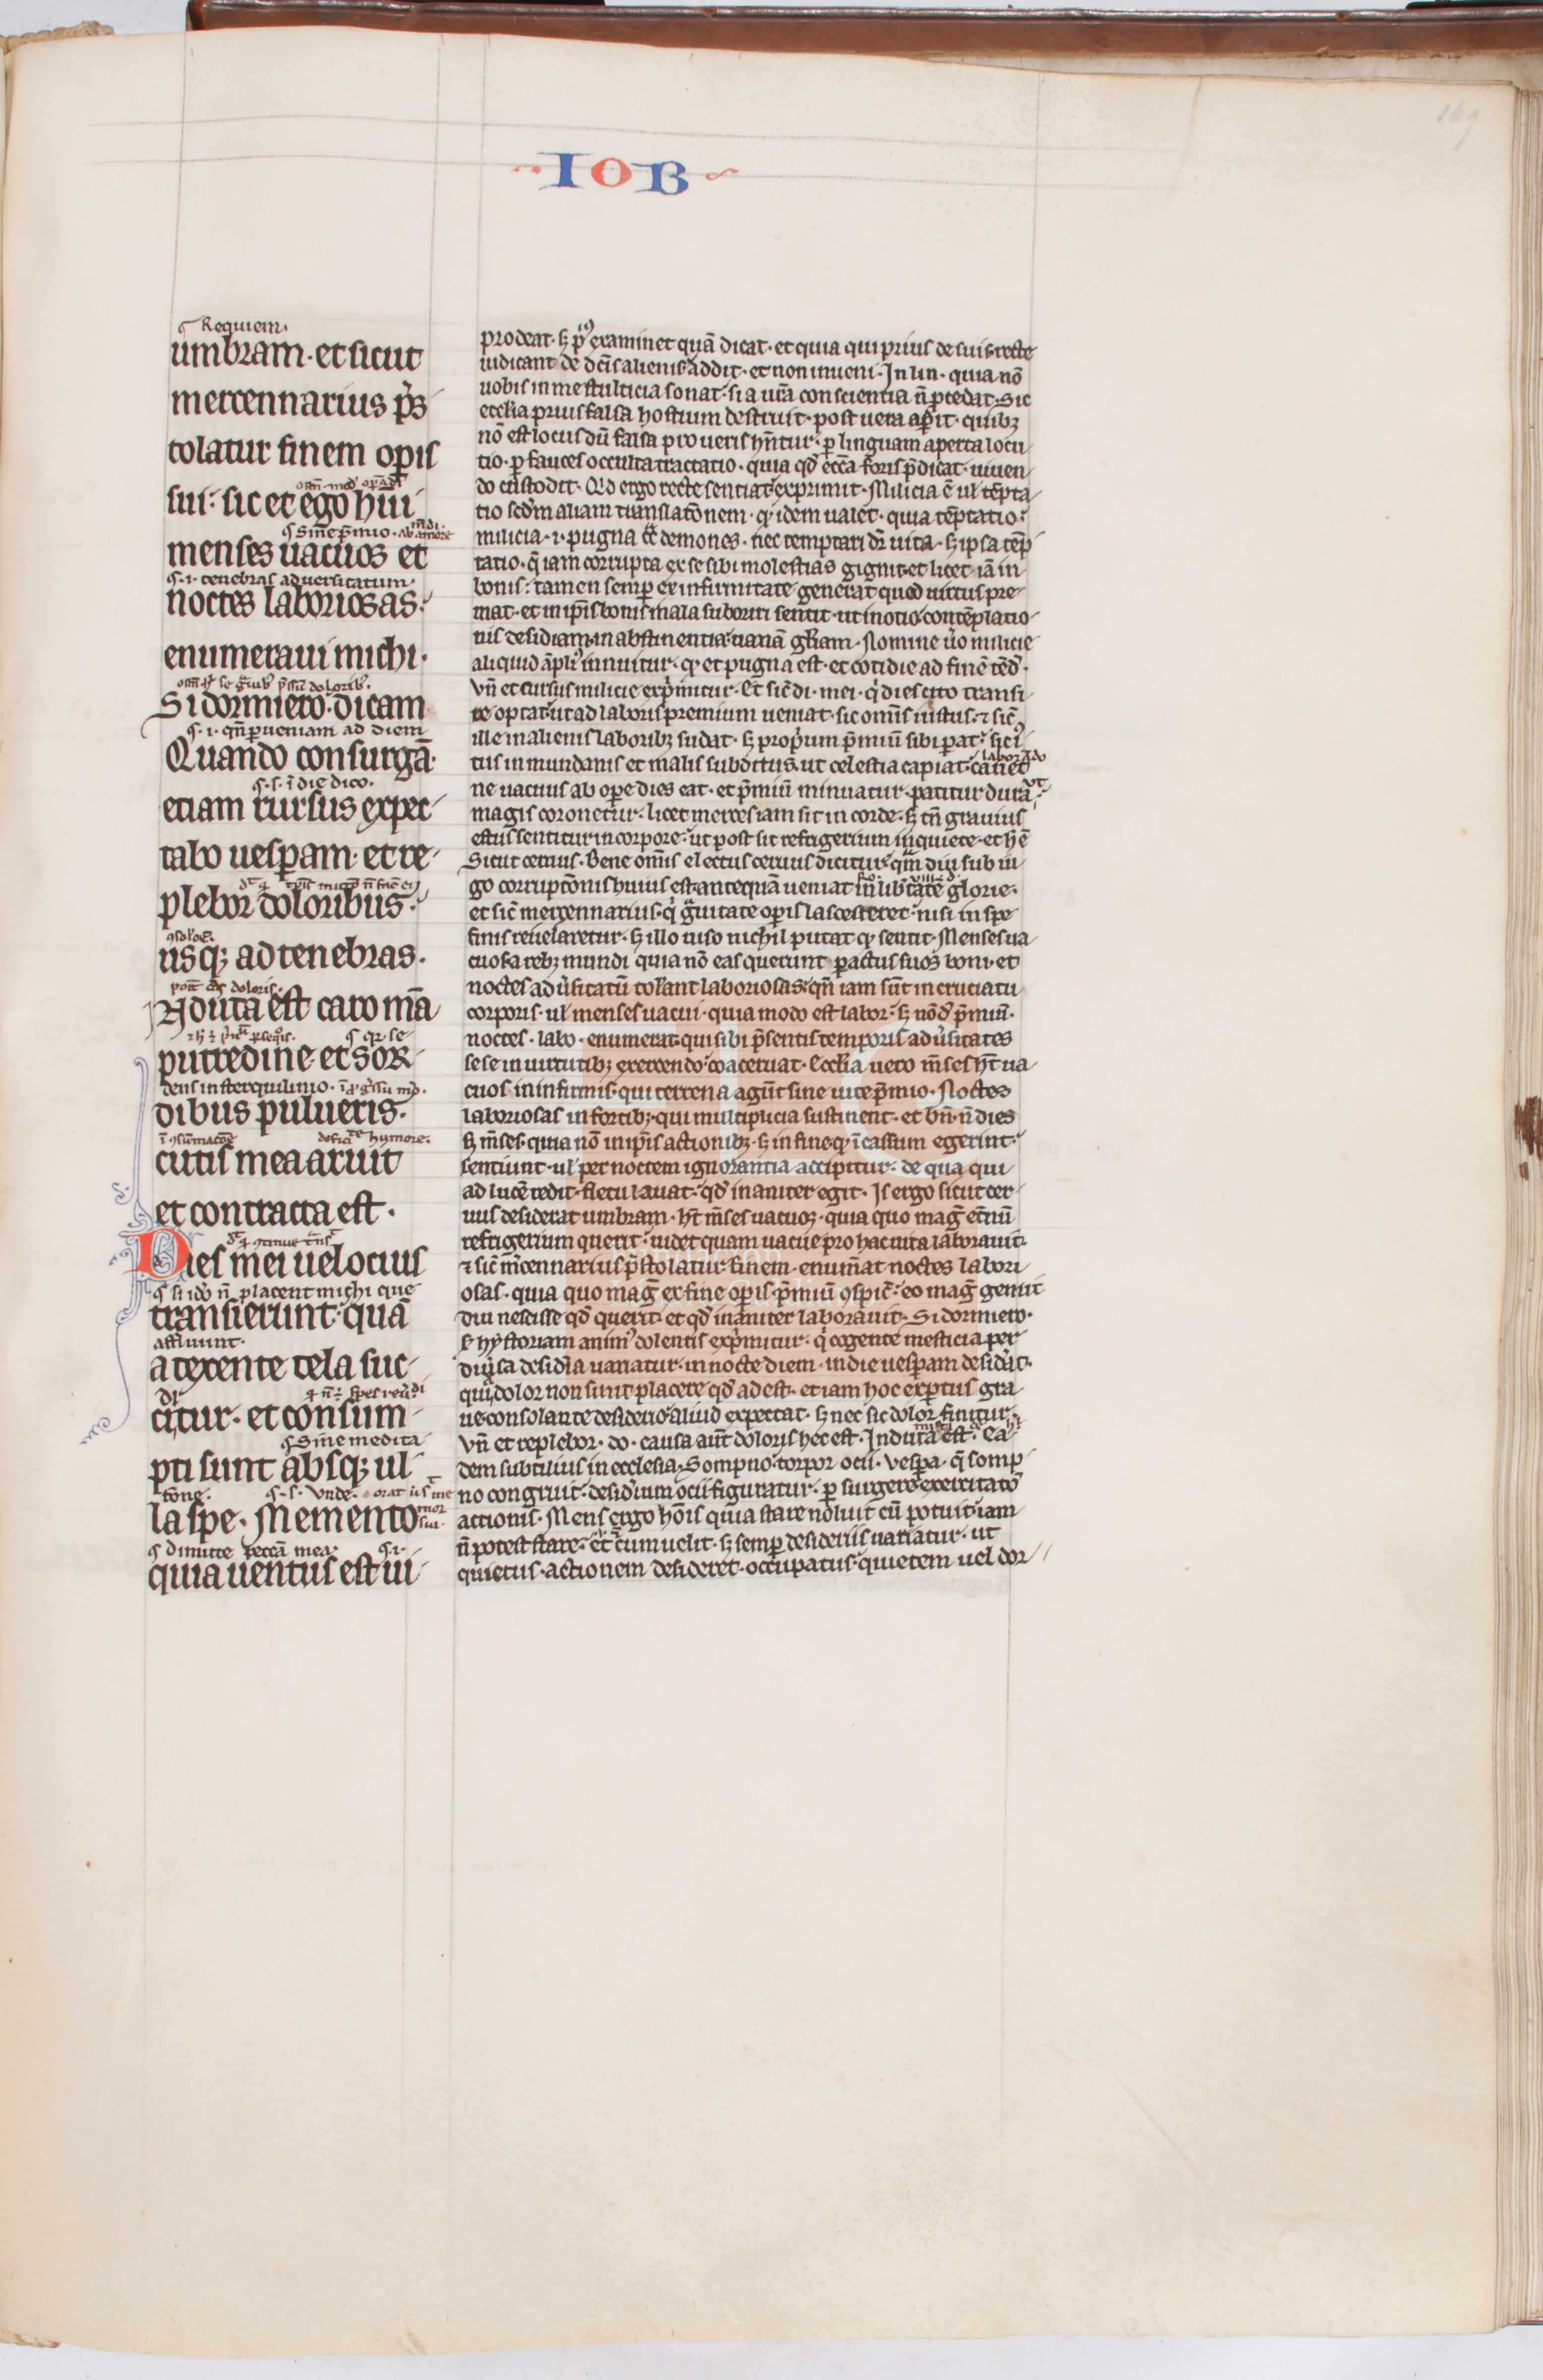 IOB
Requiem.
umbram. et sicut
mercennarius p̄s
tolatur finem op̄is
sui. sic et ego h̄ui
menses uacuos et
.i. tenebras aduersitatum.
noctes laboriosas.
enumeraui michi.
Si dormiero. dicam
.i. qn̄ ꝑueniam ad diem
Quando consurgā.
.s. ī die dico.
etiam rursus expec
tabo uesꝑam. et re
plebor doloribus.
usqꝫ ad tenebras.
Induta est caro m̄a
putredine et sor
dens in sterquilinio.
dibus pulueris.
cutis mea aruit
et contracta est.
Dies mei uelocius
transierunt. quā
a texente tela suc
citur. et consum
Sine medita
pti sunt absqꝫ ul
tōne. .s. Vnde.
la spe. Memento
dimitte peccā mea. .i.
quia uentus est ui
prodeat. sꝫ p̄us examinet quā dicat. et quia qui prius de suis recte
iudicant de dc̄is alienis addit. et non inueni. In lin. quia nō
uobis in me stulticia sonat. si a ur̄a conscientia n̄ ꝓcedat. Sic
eccl̄ia prius falsa hostium destruit. post uera aꝑit. quibꝫ
nō est locus dū falsa pro ueris hn̄tur. ꝑ linguam aperta locu
tio. ꝑ fauces occulta tractatio. quia qd̄ ecc̄a foris p̄dicat. uiuen
do custodit. Qd̄ ergo recte sentiat exprimit. Milicia ē ul̄ tēpta
tio sed'm aliam translatōnem. qꝫ idem ualet. quia tēptatio
milicia .i. pugna ct̄ demones. nec temptari dr̄ uita. sꝫ ipsa tēp
tatio. q̄ iam corrupta ex se sibi molestias gignit. et licet iā in
bonis. tamen semꝑ ex infirmitate generat quod uirtus pre
mat. et in ip̄is bonis mala suboriri sentit. ut in otio contēplatio
nis desidiam. in abstinentia. uanā gl̄iam. Nomine ūo milicie
aliquid āpli' innuitur. qꝫ et pugna est. et cotidie ad finē tēd'.
Vn̄ et cursus milicie exp̄mitur. Et sic̄ di. mei. q' dies cito transi
re optat. ut ad laboris premium ueniat. sic om̄is iustus. ⁊ sic̄
ille in alienis laboribꝫ sudat. sꝫ prop'um p̄miū sibi ꝑat. sic i'
tus in mundanis et malis subditus. ut celestia capiat. cauet
ne uacuus ab oꝑe dies eat. et p̄miū minuatur. patitur dura. ut
magis coronetur. licet merces iam sit in corde. sꝫ tn̄ grauius
estus sentitur in corpore. ut post sit refrigerium in quiete. et h̄ ē
Sicut ceruus. Bene om̄is electus ceruus dicitur. qm̄ diu sub iu
go corruptōnis huius est. antequā ueniat in lib'tatē glorie.
et sic̄ mercennarius. q' g̈uitate op̄is lascesceret. nisi in spe
finis reuelaretur. sꝫ illo uiso nichil putat qꝫ sentit. Menses ua
cuos a rebꝫ mundi quia nō eas querunt ꝑ actus suos boni. et
noctes adu'sitatū tol̄ant laboriosas. qn̄ iam sūt in cruciatu
corporis. ul̄ menses uacui. quia modo est labor. sꝫ nōd' p̄miū.
noctes. labo. enumerat. qui sibi p̄sentis temporis adu'sitates
sese in uirtutibꝫ exercendo. coaceruat. Eccl̄ia uero m̄ses h̄t ua
cuos in infirmis. qui terrena agūt sine uite p̄mio. Noctes
laboriosas in fortibꝫ. qui multiplicia sustinent. et bn̄. n̄ dies
sꝫ m̄ses. quia nō in ip̄is actionibꝫ. sꝫ in fine qꝫ ī cassum egerint.
sentiunt. ul̄ per noctem ignorantia accipitur. de qua qui
ad lucē redit. fletu lauat. qd̄ inaniter egit. Is ergo sicut cer
uus desiderat umbram. h̄t m̄ses uacuos. quia quo mag̃ et̄nū
refrigerium querit. uidet quam uacue pro hac uita laborauit.
⁊ sic̄ m̄cennarius p̄stolatur finem. enum̄at noctes labori
osas. quia quo mag̃ ex fine op̄is. p̄miū ꝯspic̄. eo mag̃ gemit
diu nescisse qd̄ querit. et qd̄ inaniter laborauit. Si dormiero.
hystoriam anim' dolentis exp̄mitur. q' cogente mesticia per
diu'sa desid'ia uariatur. in nocte diem. in die uesꝑam desid'at.
quia dolor non sinit placere qd̄ adest. etiam hoc exꝑtus gra
ue. consolante desiderio. aliud expectat. sꝫ nec sic dolor finitur.
Vn̄ et replebor. do. causa aūt doloris hec est. Induta est. Ea
dem subtilius in ecclesia. Sompno. torpor ocii. uesꝑa. q̄ somp
no congruit. desid'ium ocii figuratur. ꝑ surgere. exercitatō
actionis. Mens ergo hōis quia stare noluit cū potuit. iam
n̄ potest stare. et cum uelit. sꝫ semꝑ desideriis uariatur. ut
quietus. actionem desideret. occupatus. quietem uel dor